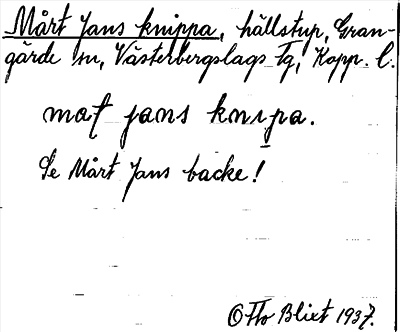 Mårt Jans knippa, hällstup, Gran-
gärde sn, Västerbergslags Tg, Kopp. l.
mat jans knıpa.
Se Mårt Jans backe!
Otto Blixt 1937.